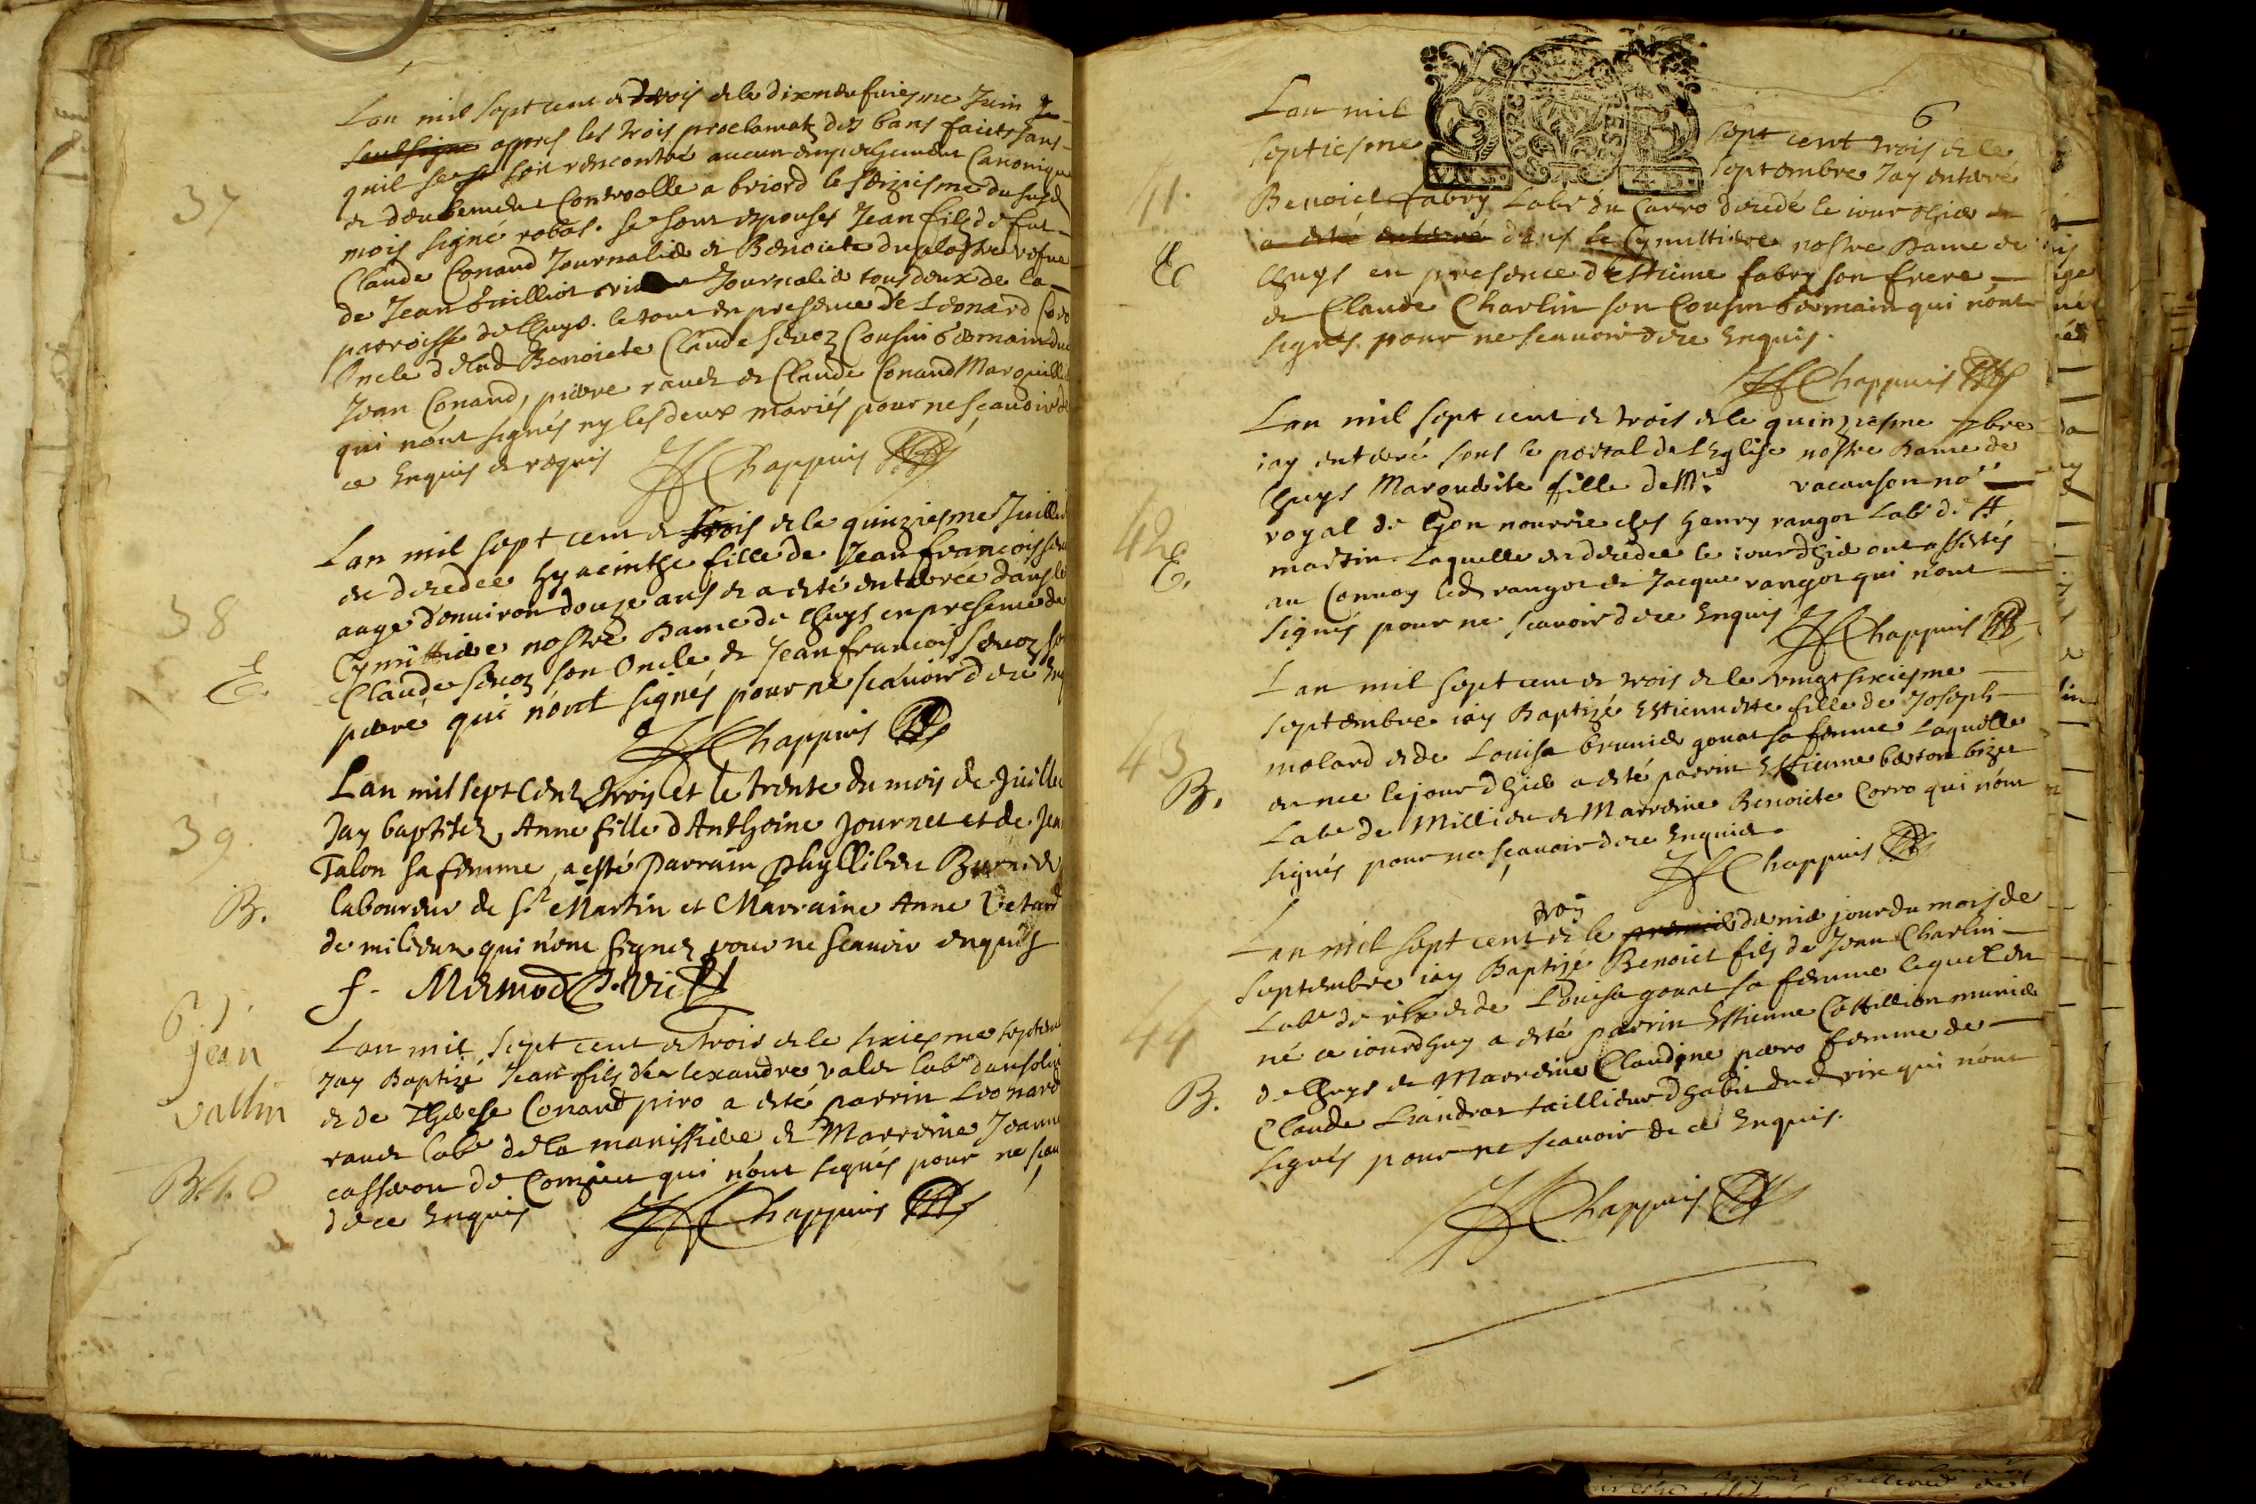 37
Lan mil sept cent et trois et le dixneufuiesme Juin
soubsigne appres les trois proclamaōn des bans faicts sans
quil se soit rencontré aucun empeschement Canonique
et deuhement Controolle a briord le seiziesme du susd
mois signé robat. se sont espousés Jean fils de fut
Claude Conand Journalier et Benoicte vefue
de Jean Guilliot Journalier tous deux de la
parroisse de Lhuys. le tout en presence de Leonard
Oncle de lad Benoiete Claude seuoz Cousin Germain dud
Jean Conand, pierre rauet et Claude Conand Marguillier
qui nónt signés ny les deux mariés pour ne scauoir
ce Enquis et requis Chappuis
38
E.
Lan mil sept cent et trois et le quinziesme Juillet
est decedee hyacinthe fille de Jean françois
aage d'enuiron douze ans et a esté enterrée dans le
Cymittiere nostre Dame de Lhuys en presence de
Claude seuoz son Oncle et Jean francois seuoz son
pere qui nónt signés pour ne scauoir dece Enq
Chappuis
39.
B.
Lan mil sept Centz trois et le trente du mois de Juillet
Jay baptisez, Anne fille d'Anthoine Journet et de Jea
Talon sa femme, a esté Parrain Phyllibert
laboureur de st Martin et Marraine Anne
de milieux qui nont signez pour ne scauoir enquis
f. Mermod Vic
Jean
vallin
Lan mil sept cent et trois et le sixiesme septem
Jay Baptizé Jean fils de lexandre labr
et de Therese Conand piro a esté parrin Leonard
rauet labr de la manissiere et Marreine Jeanne
casseron de Comieu qui nónt signés pour ne scau
dece Enquis Chappuis
6
41.
E
Lan mil sept cent trois et le
septiesme septembre Jay enterré
Benoict fabry Labr du Carro decedé le iour dhier et
a esté enterré dans le Cymittiere nostre Dame de
Lhuys en presence d'estiene fabry son frere
et Claude Charlin son Cousin Germain qui nónt
signés pour ne scauoir dece Enquis.
Chappuis
42
E.
Lan mil sept cent et trois et le quinziesme 7bre
iay enterré sous le portal de l'Eglise nostre Dame de
Lhuys Marguerite fille de Mr vacanson no
royal de lyon nourrie ches henry rangot Labr de st
martin Laquelle est decedee le iour dhier ont assistés
au Conuoy led rangot et Jacque rangot qui nont
signés pour ne scauoir dece Enquis Chappuis
43
B.
Lan mil sept cent et trois et le vingt sixiesme
septembre iay Baptizé Estiennette fille de Joseph
molard et de Louisa brunier gonat sa femme Laquelle
est nee le jour dhier a esté parrin Estienne
Labr de Millieu et Marreine Benoicte Corro qui nónt
signés pour ne scauoir dece Enquis.
Chappuis
44
B.
trois
Lan mil sept cent et le premier dernier jour du mois de
septembre iay Baptizé Benoict fils de Jean Charlin
Labr de rix et de Louisa gonat sa femme lequel est
né ce iourdhuy a esté parrin Estienne Cottillion munier
de Lhuys et Marreine Claudine pero femme de
Claude Liandrat taillieur dhabit dud rix qui nónt
signés pour ne scauoir de ce Enquis.
Chappuis